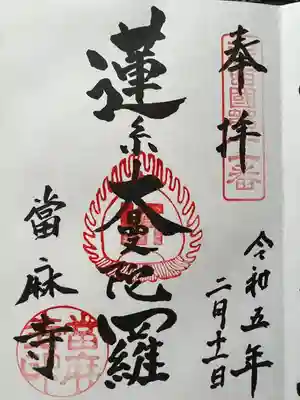 奉拝
令和五年
二月十一日
蓮糸大曼陀羅
當麻寺